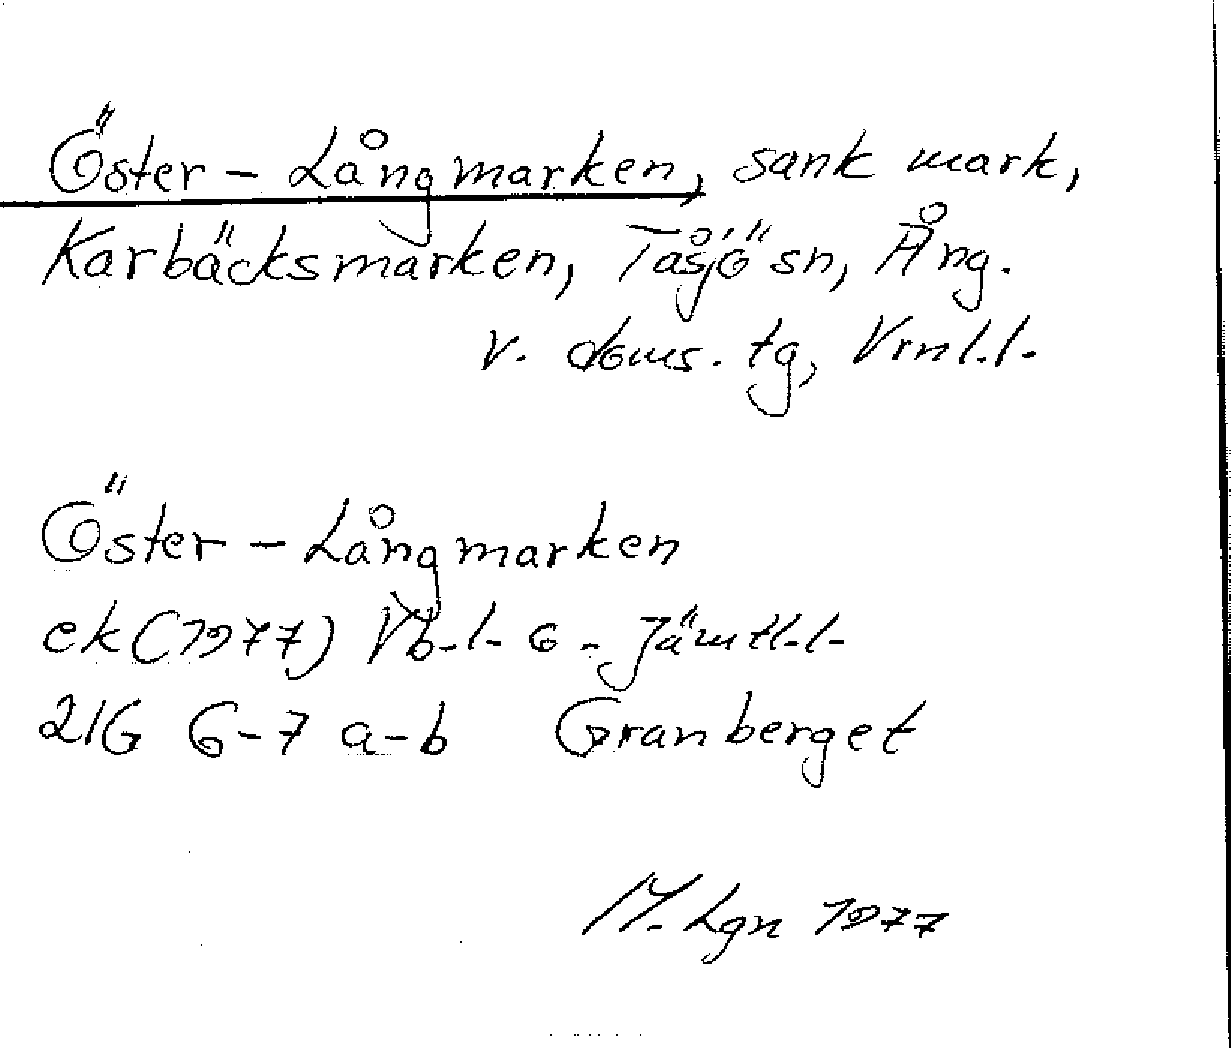 Öster-Långmarken, sank mark,
Karbäcksmarken, Tåsjö sn, Ång.
V. doms. tg, Vrnl.l.
Öster-Långmarken
ek(1977) Vb-l- 6 - Jämtl-l-
21G 6-7 a-b Granberget
M. Lgn 1977